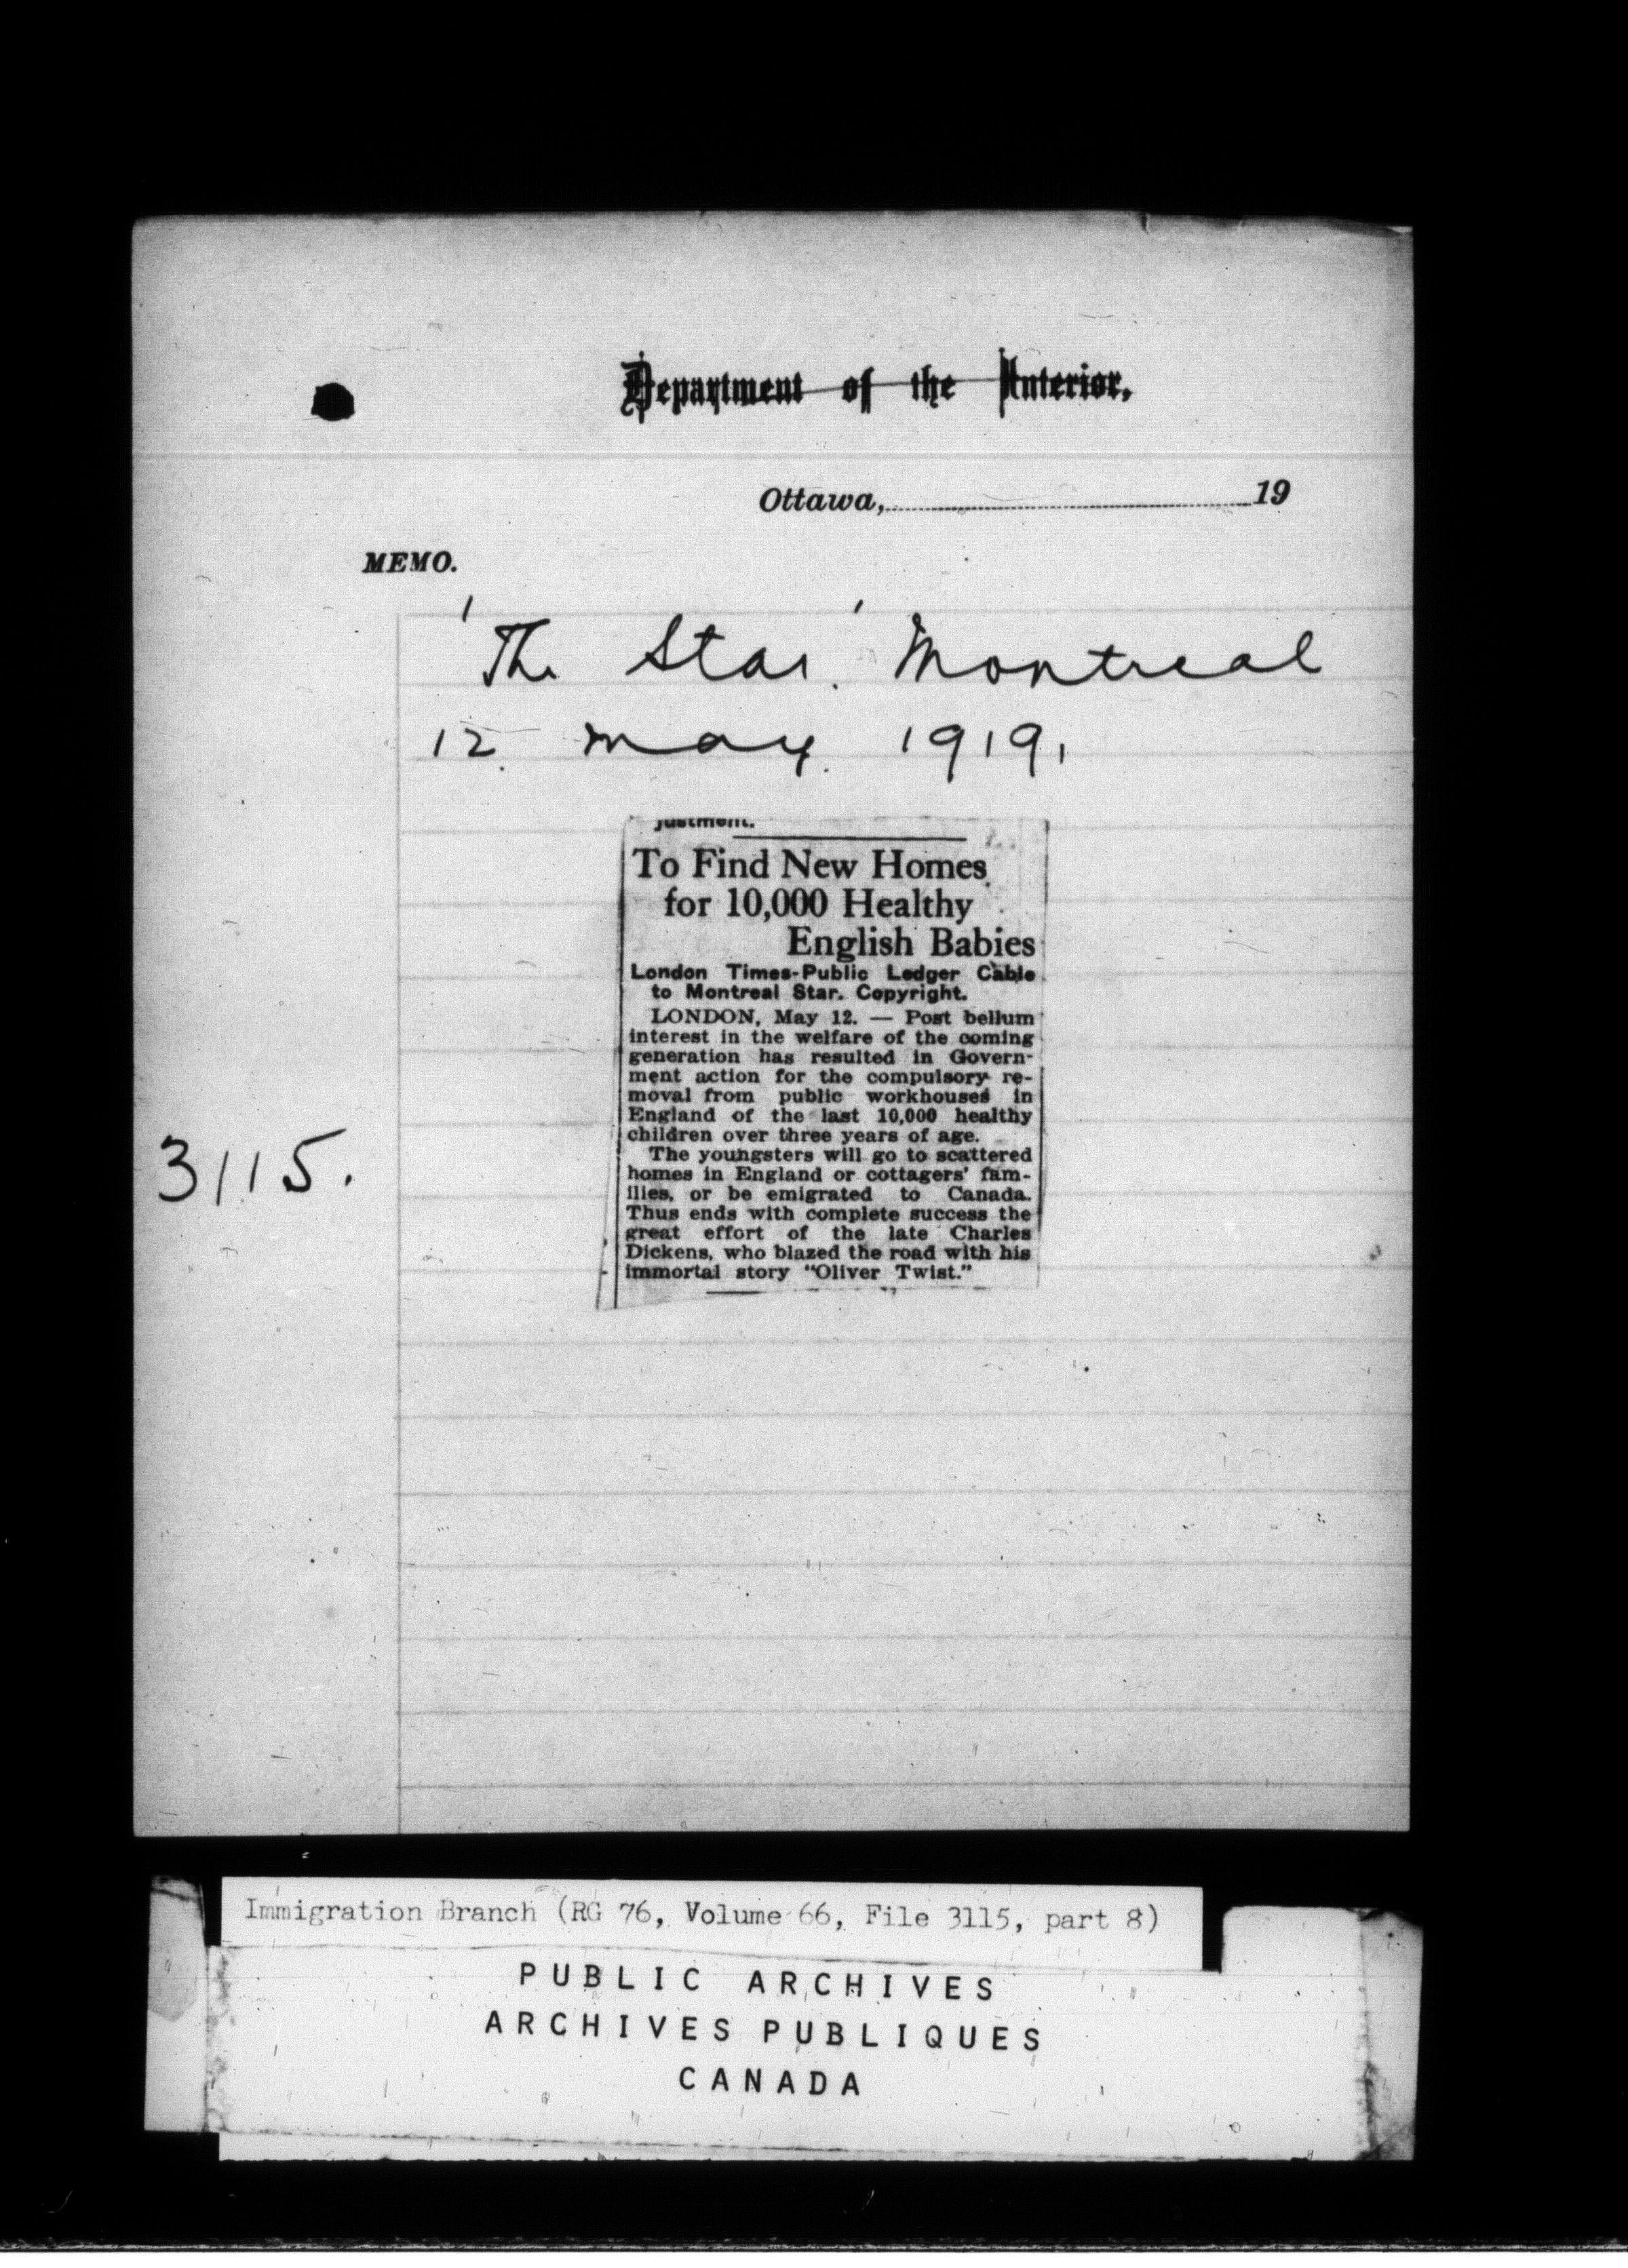 Department of the Interior,
Ottawa, 19
MEMO.
'The Star.' Montreal
12. May. 1919,
justment.
To Find New Homes
for 10,000 Healthy
English Babies
London Times-Public Ledger Cable
to Montreal Star. Copyright.
LONDON, May 12. — Post bellum
interest in the welfare of the coming
generation has resulted in Govern-
ment action for the compulsory re-
moval from public workhouses in
England of the last 10,000 healthy
children over three years of age.
The youngsters will go to scattered
homes in England or cottagers' fam-
ilies, or be emigrated to Canada.
Thus ends with complete success the
great effort of the late Charles
Dickens, who blazed the road with his
immortal story "Oliver Twist."
3115.
Immigration Branch (RG 76, Volume 66, File 3115, part 8)
PUBLIC ARCHIVES
ARCHIVES PUBLIQUES
CANADA